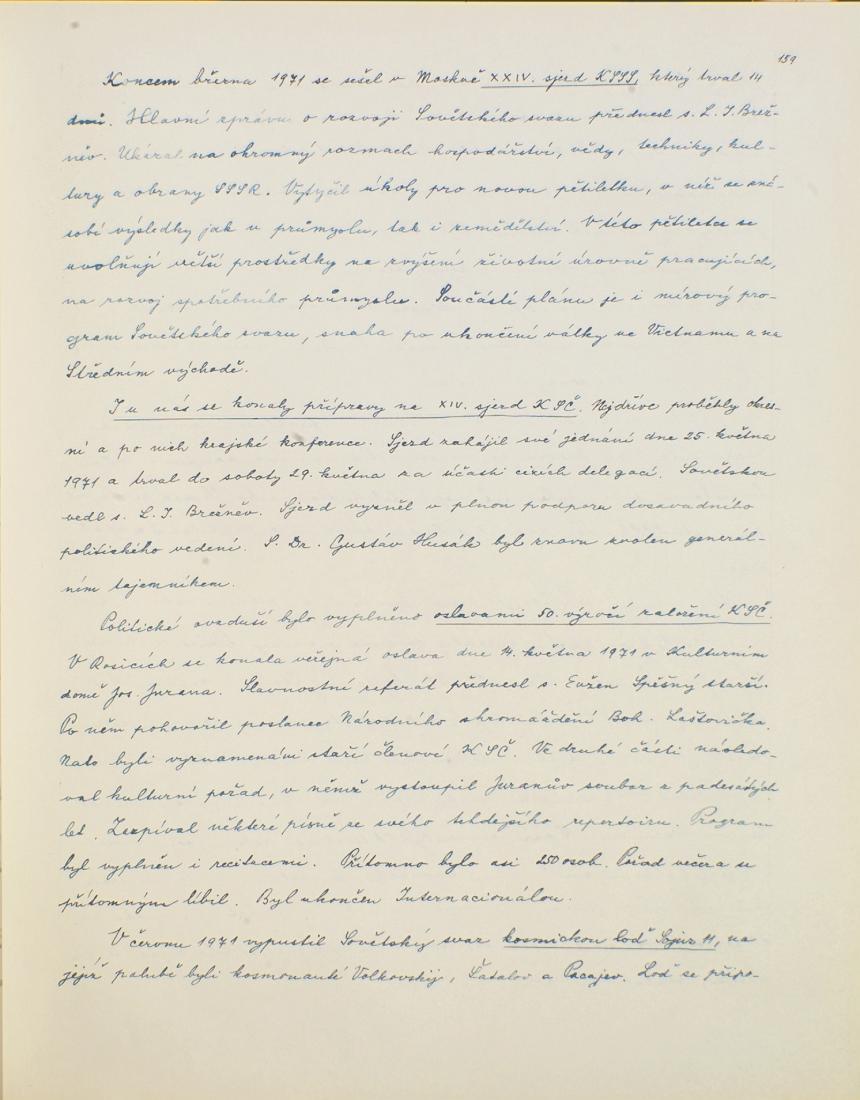 159
Koncem března 1971 se sešel v Moskvě XXIV. sjezd KSSS, který trval 14
dnů. Hlavní zprávu o rozvoji Sovětského svazu přednesl s. L. I. Brež-
něv. Ukázal na ohromný rozmach hospodářství, vědy, techniky, kul-
tury a obrany SSSR. Vytyčil úkoly pro novou pětiletku, v níž se zná-
sobí výsledky jak v průmyslu, tak i zemědělství. V této pětiletce se
uvolňují větší prostředky na zvýšení životní úrovně pracujících,
na rozvoj spotřebního průmyslu. Součástí plánu je i mírový pro-
gram Sovětského svazu, snaha po ukončení války ve Vietnamu a na
Středním východě.
I u nás se konaly přípravy na XIV. sjezd KSČ. Nejdříve proběhly okres-
ní a po nich krajské konference. Sjezd zahájil své jednání dne 25. května
1971 a trval do soboty 29. května za účasti cizích delegací. Sovětskou
vedl s. L. I. Brežněv. Sjezd vyzněl v plnou podporu dosavadního
politického vedení. S. Dr. Gustáv Husák byl znovu zvolen generál-
ním tajemníkem.
Politické ovzduší bylo vyplněno oslavami 50. výročí založení KSČ.
V Rosicích se konala veřejná oslava dne 14. května 1971 v Kulturním
domě Jos. Jurana. Slavnostní referát přednesl s. Evžen Spěšný starší.
Po něm pohovořil poslanec Národního shromáždění Boh. Laštovička.
Nato byli vyznamenáni staří členové KSČ. Ve druhé části následo-
val kulturní pořad, v němž vystoupil Juranův soubor z padesátých
let. Zazpíval některé písně ze svého tehdejšího repertoiru. Program
byl vyplněn i recitacemi. Přítomno bylo asi 250 osob. Pořad večera se
přítomným líbil. Byl ukončen Internacionálou.
V červnu 1971 vypustil Sovětský svaz kosmickou loď Sojuz 11, na
jejíž palubě byli kosmonauté Volkovskij, Šatalov a Pacajev. Loď se připo-